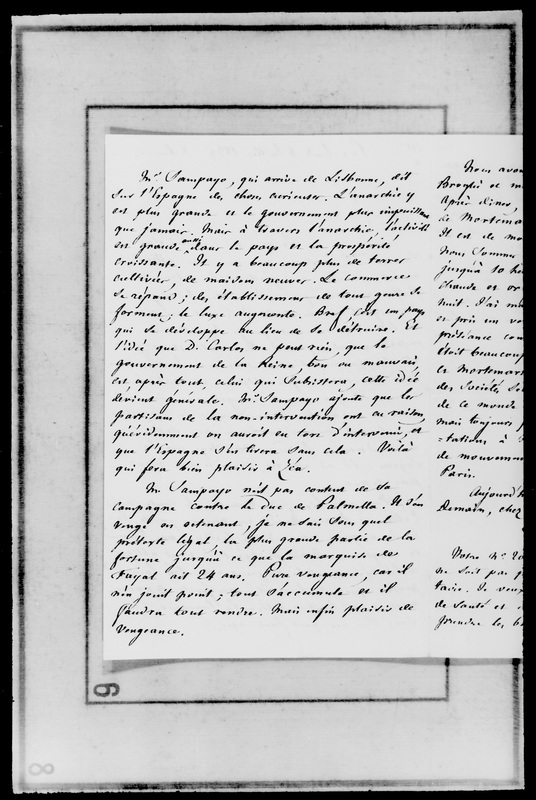 Mr Sampayo, qui arrive de Lisbonne, dit
sur l'Espagne des choses curieuses. L'anarchie y
est plus grande et le gouvernement plus impuissant
que jamais. Mais à travers l'anarchie, l'activité
est grande aussi dans le pays et la prospérité
croissante. Il y a beaucoup plus de terres
cultivées, de maisons neuves. Le commerce
se répand; des établissemens de tout genre se
forment; le luxe augmente. Bref, c'est un pays
qui se développe au lieu de se détruire. Et
l'idée que D. Carlos ne peut rien, que le
gouvernement de la Reine, bon ou mauvais,
est, après tout, celui qui subsistera, cette idée
devient générale. Mr Sampayo ajoute que les
partisans de la non-intervention ont eu raison,
qu'évidemment on auroit eu tort d'intervenir, et
que l'Espagne s'en tirera sans cela. Voilà
qui fera bien plaisir à Zéa.
M. Sampayo n'est pas content de sa
campagne contre le Duc de Palmella. Il s'en
venge en retenant, je ne sais sous quel
prétexte légal, la plus grande partie de la
fortune jusqu'à ce que la marquise de
Fayal ait 24 ans. Pure vengeance, car il
n'en jouit point; tout s'accumule et il
faudra tout rendre. Mais enfin plaisir de
vengeance.
Nous avon
Broglie et m
Après diner,
de Mortemar
Il est de mo
Nous sommes
jusqu'à 10 he
chaude et or
nuit. J'ai m
et pris un ve
présidence con
était beaucoup
et Mortemart
des Sociétés Se
de ce monde
mais toujours
-tations à
de mouvemen
Paris.
Aujourd'h
Demain, chez
Votre No 20
ne sait pas j
taire. Je veux
de santé et
prendre les b
9
8